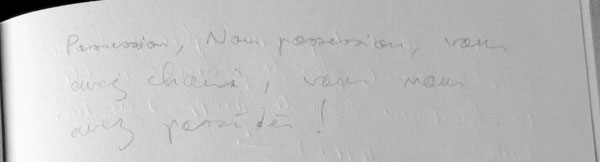 Possession, Nom possession, vous
avez choisi, vous nous
avez possédés !